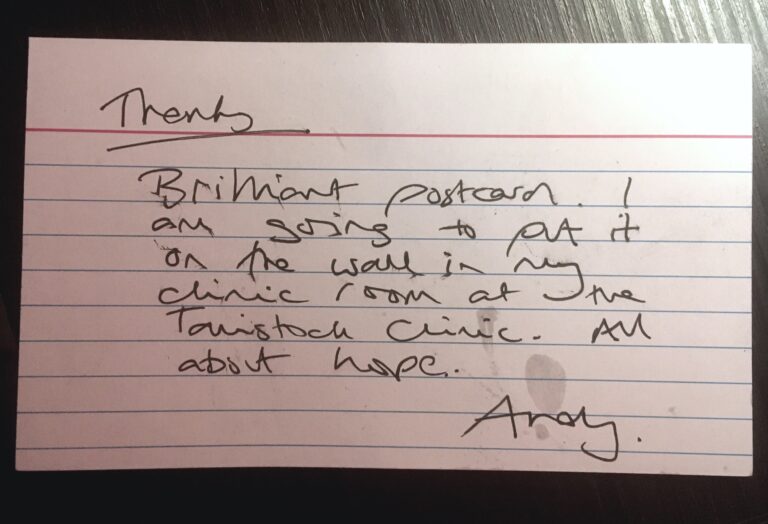 Thanks
Brilliant postcard. I
am going to put it
on the wall in my
clinic room at the
Tavistock Clinic. All
about hope.
Andy.